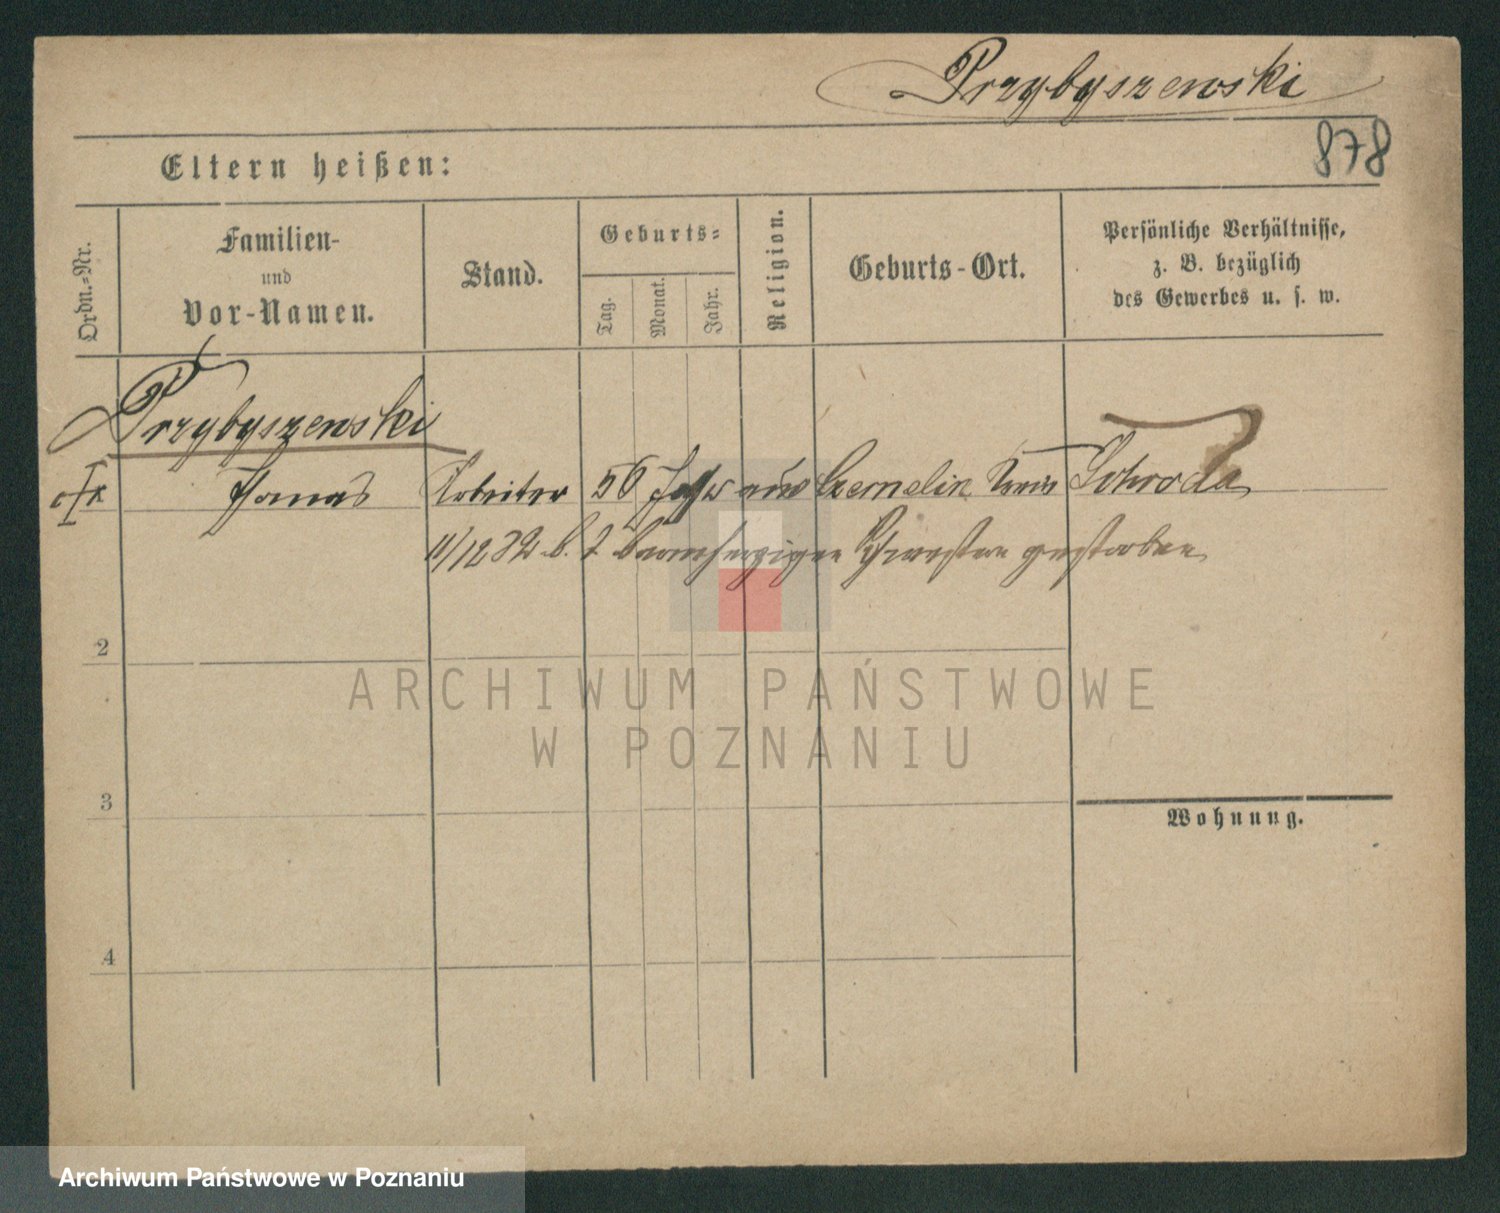 Przybyszewski
878
Eltern heißen:
Ordn.-Nr.
Familien-
und
Vor-Namen.
Stand.
Geburts-
Tag.
Monat.
Jahr.
Religion.
Geburts-Ort.
Persönliche Verhältnisse,
z. B. bezüglich
des Gewerbes u. s. w.
Przybyszewski
Thomas Arbeiter 56 Jahr aus Czernelin Kreis Schroda
11/12 82 b. d. barmherzigen Schwestern gestorben
2
ARCHIWUM PAŃSTWOWE
W POZNANIU
3
Wohnung.
4
Archiwum Państwowe w Poznaniu